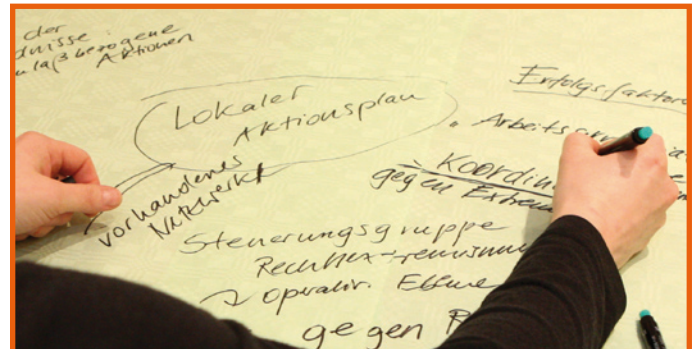 der
dnisse:
nlaßbezogene
Aktionen
Lokaler
Aktionsplan
vorhandenes
Netzwerk
Erfolgsfaktore
• Arbeitsgru
Koordin
gegen Extrem
Steuerungsgruppe
Rechtsextremismu
operativ. Ebene
gegen R